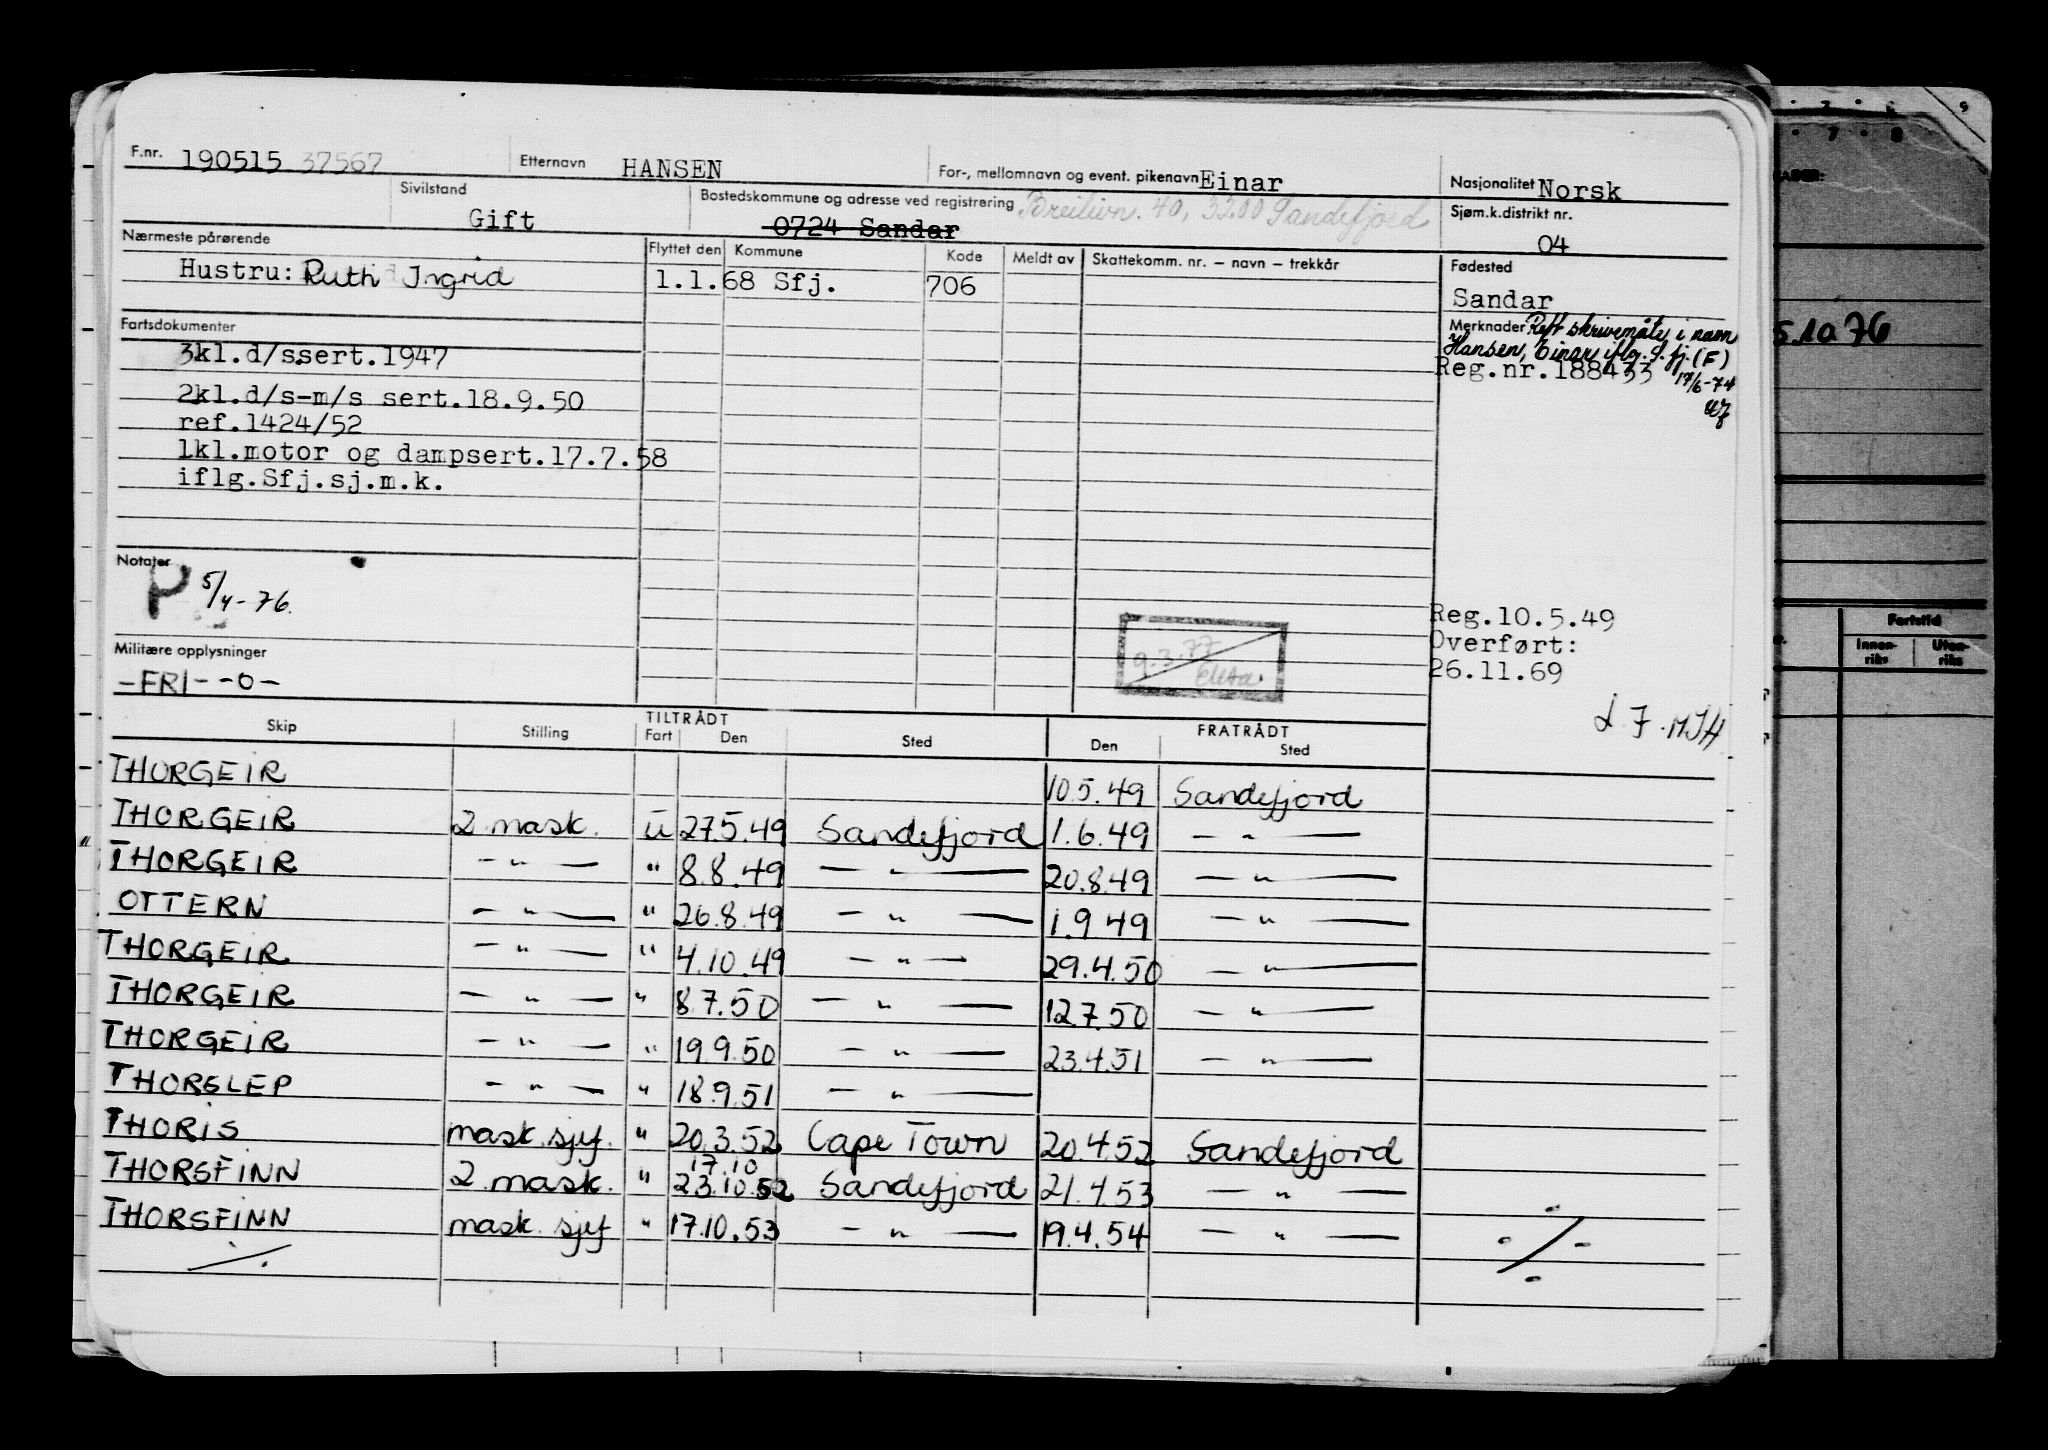 F.nr. 190515 37567 Etternavn HANSEN For-, mellomnavn og event. pikenavn Einar Nasjonalitet Norsk
Sivilstand Gift Bostedskommune og adresse ved registrering 0724 Sandar 40, 3200 Sandefjord Sjøm.k.distrikt nr. 04
Nærmeste pårørende Flyttet den Kommune Kode Meldt av Skattekomm. nr. – navn – trekkår Fødested
Hustru: Ruth Ingrid 1.1.68 Sfj. 706 Sandar
Fartsdokumenter Merknader Rett skrivemåte i navn
Hansen, Einar iflg. S.fj. (F)
3kl.d/ssert.1947 Reg.nr.188433 17/6-74
2kl.d/s-m/s sert.18.9.50
ref.1424/52
1kl.motor og dampsert.17.7.58
iflg.Sfj.sj.m.k.
Notater
P 5/4-76.
Reg.10.5.49
Overført:
26.11.69
9.3.77
Militære opplysninger
-FRI--0-
TILTRÅDT FRATRÅDT
Skip Stilling Fart Den Sted Den Sted
THORGEIR 10.5.49 Sandefjord
THORGEIR 2 mask. u 27.5.49 Sandefjord 1.6.49 — " —
THORGEIR — " — " 8.8.49 — " — 20.8.49 — " —
OTTERN — " — " 26.8.49 — " — 1.9 49 — " —
THORGEIR — " — " 4.10.49 — " — 29.4.50 — " —
THORGEIR — " — " 8 7.50 — " — 12.7.50 — " —
THORGEIR — " — " 19.9.50 — " — 23.4.51 — " —
THORSLEP — " — " 18.9.51 — " —
THORIS mask.sjef. " 20.3.52 Cape Town 20.4.52 Sandefjord
17.10
THORSFINN 2 mask. " 23.10.52 Sandefjord 21.4.53 — " —
THORSFINN mask sjef " 17.10.53 — " — 19.4.54 — " —
5.10 76
Fartstid
Innen-
riks
Uten-
riks